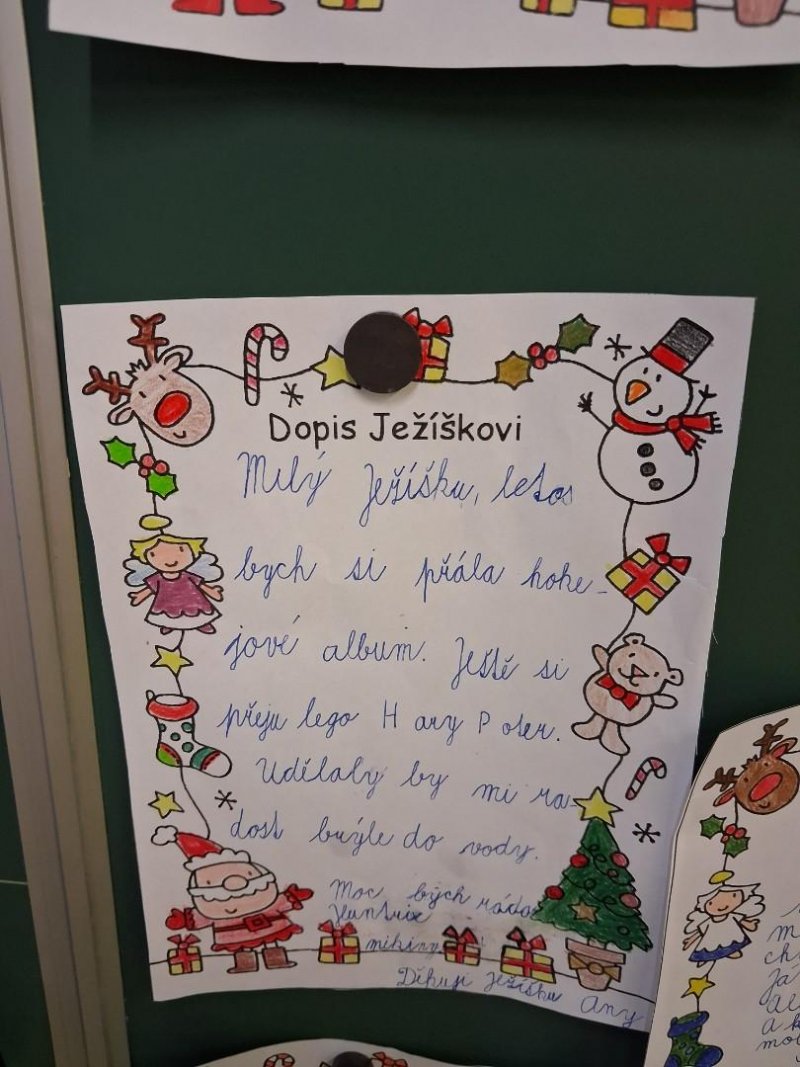 Dopis Ježíškovi
Milý Ježíšku, letos
bych si přála hoke-
jové album. Ještě si
přeju lego Hary Poter.
Udělaly by mi ra-
dost brýle do vody.
Moc bých ráda
Huntrix
mikiny
Díkuji Ježíšku Any